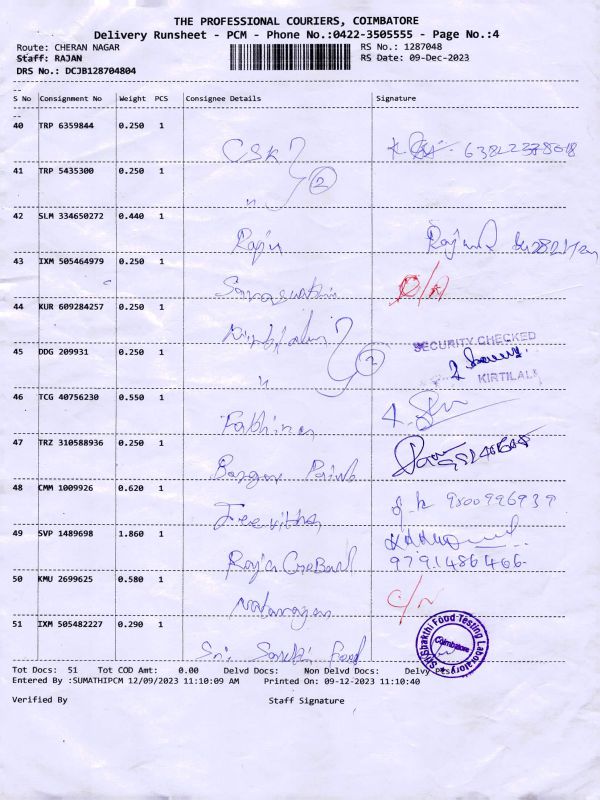 THE PROFESSIONAL COURIERS, COIMBATORE
Delivery Runsheet - PCM - Phone No.:0422-3505555 - Page No.:4
Route: CHERAN NAGAR RS No.: 1287048
Staff: RAJAN RS Date: 09-Dec-2023
DRS No.: DCJB128704804
S No Consignment No Weight PCS Consignee Details Signature
40 TRP 6359844 0.250 1
CSK
41 TRP 5435300 0.250 1
2
"
42 SLM 334650272 0.440 1
Raju
43 IXM 505464979 0.250 1
Saraswathi
44 KUR 609284257 0.250 1
SECURITY CHECKED
45 DDG 209931 0.250 1
2
KIRTILAL
"
46 TCG 40756230 0.550 1
47 TRZ 310588936 0.250 1
48 CMM 1009926 0.620 1
9800996939
Jeevitha
49 SVP 1489698 1.860 1
9791486466
50 KMU 2699625 0.580 1
Natarajan
51 IXM 505482227 0.290 1
Sri Sakthi Food
Sri Shakthi Food Testing Laboratory
Coimbatore
Tot Docs: 51 Tot COD Amt: 0.00 Delvd Docs: Non Delvd Docs: Delvy
Entered By :SUMATHIPCM 12/09/2023 11:10:09 AM Printed On: 09-12-2023 11:10:40
Verified By Staff Signature